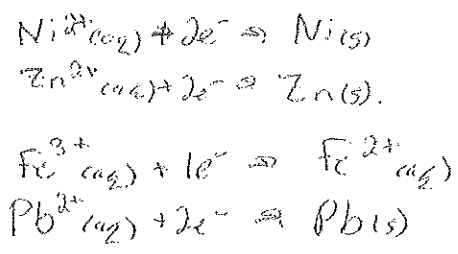 Ni²⁺(aq) + 2e⁻ → Ni(s)
Zn²⁺(aq) + 2e⁻ → Zn(s).
Fe³⁺(aq) + 1e⁻ → Fe²⁺(aq)
Pb²⁺(aq) + 2e⁻ → Pb(s)